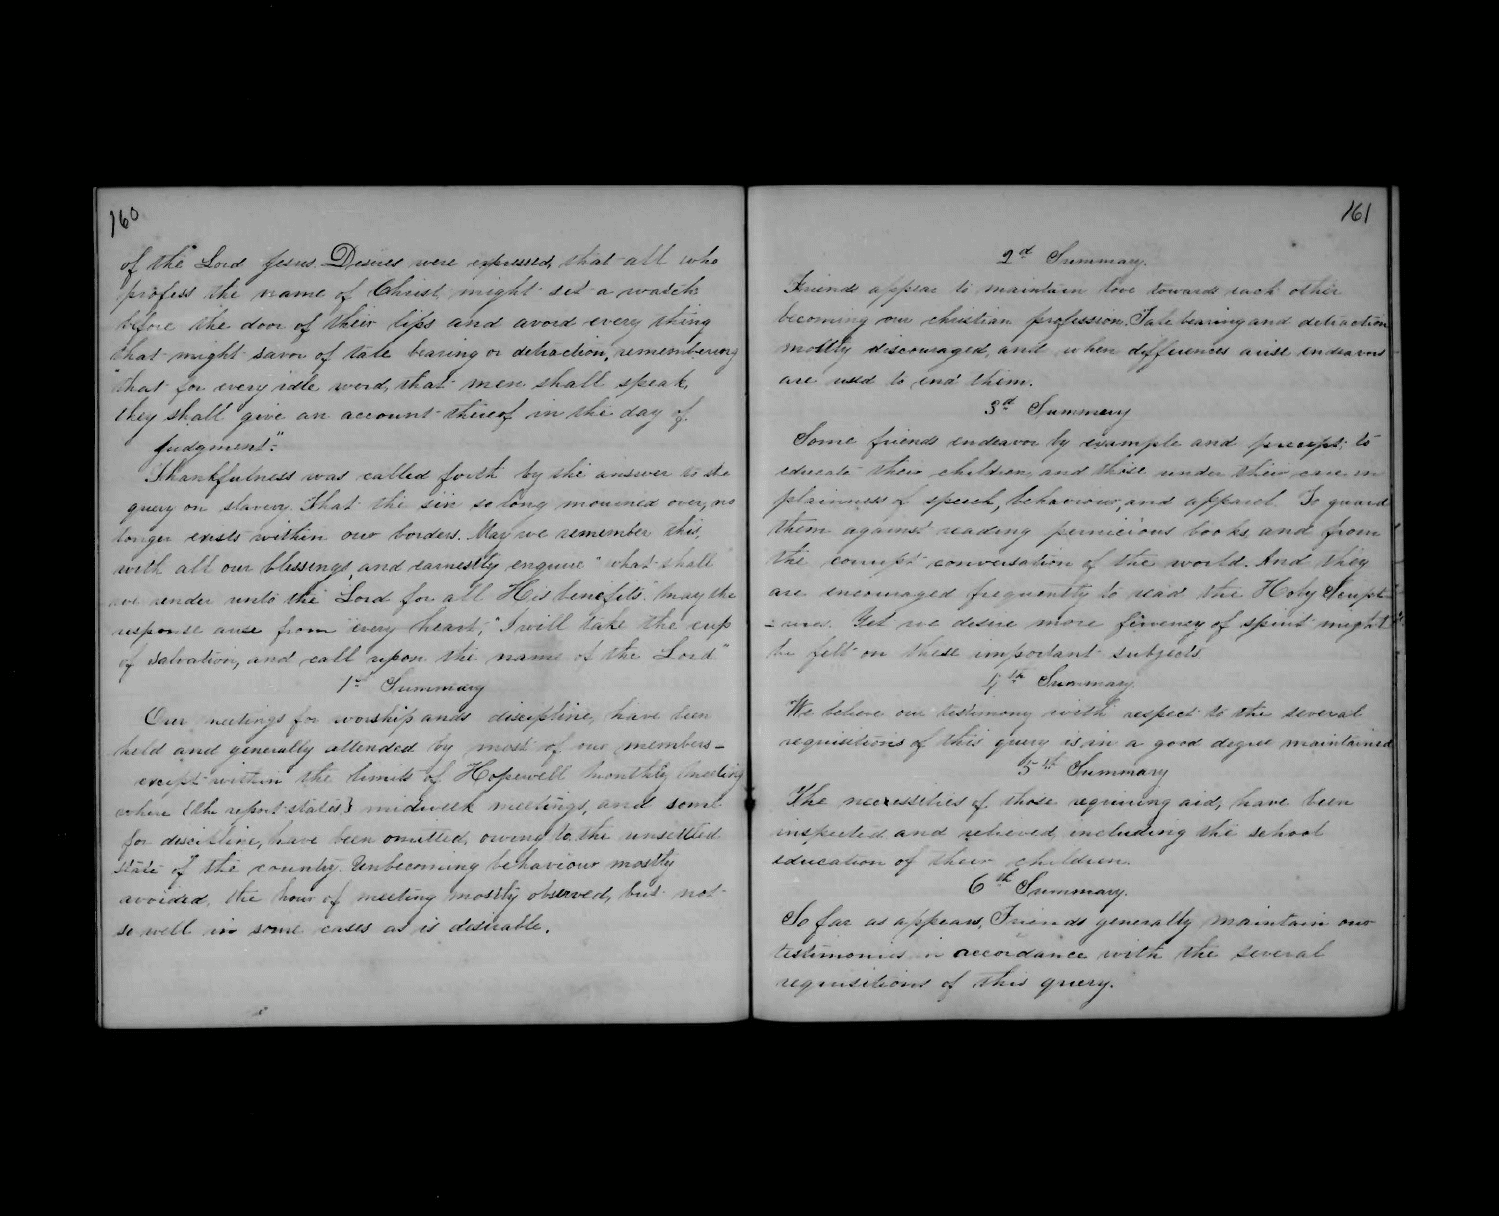 160
of the Lord Jesus. Desires were expressed, that all who
profess the name of Christ might set a watch
before the door of their lips and avoid every thing
that might savor of tale bearing or detraction, remembering
"that for every idle word, that men shall speak,
they shall give an account thereof in the day of
judgment."
Thankfulness was called forth by the answer to the
query on slavery. That the sin so long mourned over, no
longer exists within our borders. May we remember this,
with all our blessings, and earnestly enquire "what shall
we render unto the Lord for all His benefits" may the
response arise from every heart, "I will take the cup
of salvation, and call upon the name of the Lord"
1st Summary
Our meetings for worship and discipline, have been
held and generally attended by most of our members–
except within the limits of Hopewell Monthly Meeting
where (the report states) midweek meetings, and some
for discipline, have been omitted, owing to the unsettled
state of the country. Unbecoming behaviour mostly
avoided, the hour of meeting mostly observed, but not
so well in some cases as is desirable.
161
2d Summary.
Friends appear to maintain love towards each other
becoming our christian profession. Tale bearing and detraction
mostly discouraged, and when differences arise endeavors
are used to end them.
3d Summary
Some friends endeavor by example and precept to
educate their children, and those under their care in
plainness of speech, behaviour, and apparel. To guard
them against reading pernicious books, and from
the corrupt conversation of the world. And they
are encouraged frequently to read the Holy Script-
-ures. Yet we desire more fervency of spirit might
be felt on these important subjects
4th Summary
We believe our testimony with respect to the several
requisitions of this query is in a good degree maintained
5th Summary
The necessities of those requiring aid, have been
inspected and relieved, including the school
education of their children.
6th Summary.
So far as appears, Friends generally maintain our
testimonies in accordance with the several
requisitions of this query.